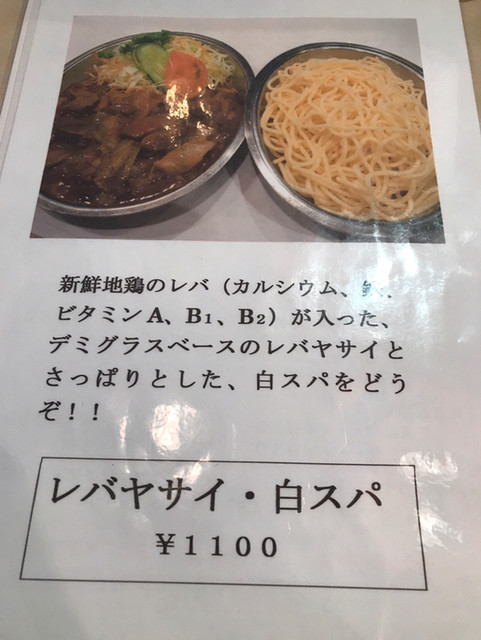 新鮮地鶏のレバ（カルシウム、
ビタミンA、B1、B2）が入った、
デミグラスベースのレバヤサイと
さっぱりとした、白スパをどう
ぞ！！
レバヤサイ・白スパ
￥1100